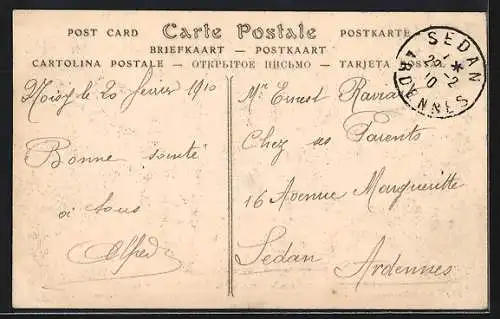 POST CARD Carte Postale POSTKARTE
BRIEFKAART — POSTKAART
CARTOLINA POSTALE — ОТКРЫТОЕ ПИСЬМО — TARJETA POSTAL
SEDAN
ARDENNES
Noisy le 20 février 1910
Bonne santé
à tous
Alfred
Mr Ernest
Chez ses Parents
16 Avenue Margueritte
Sedan
Ardennes